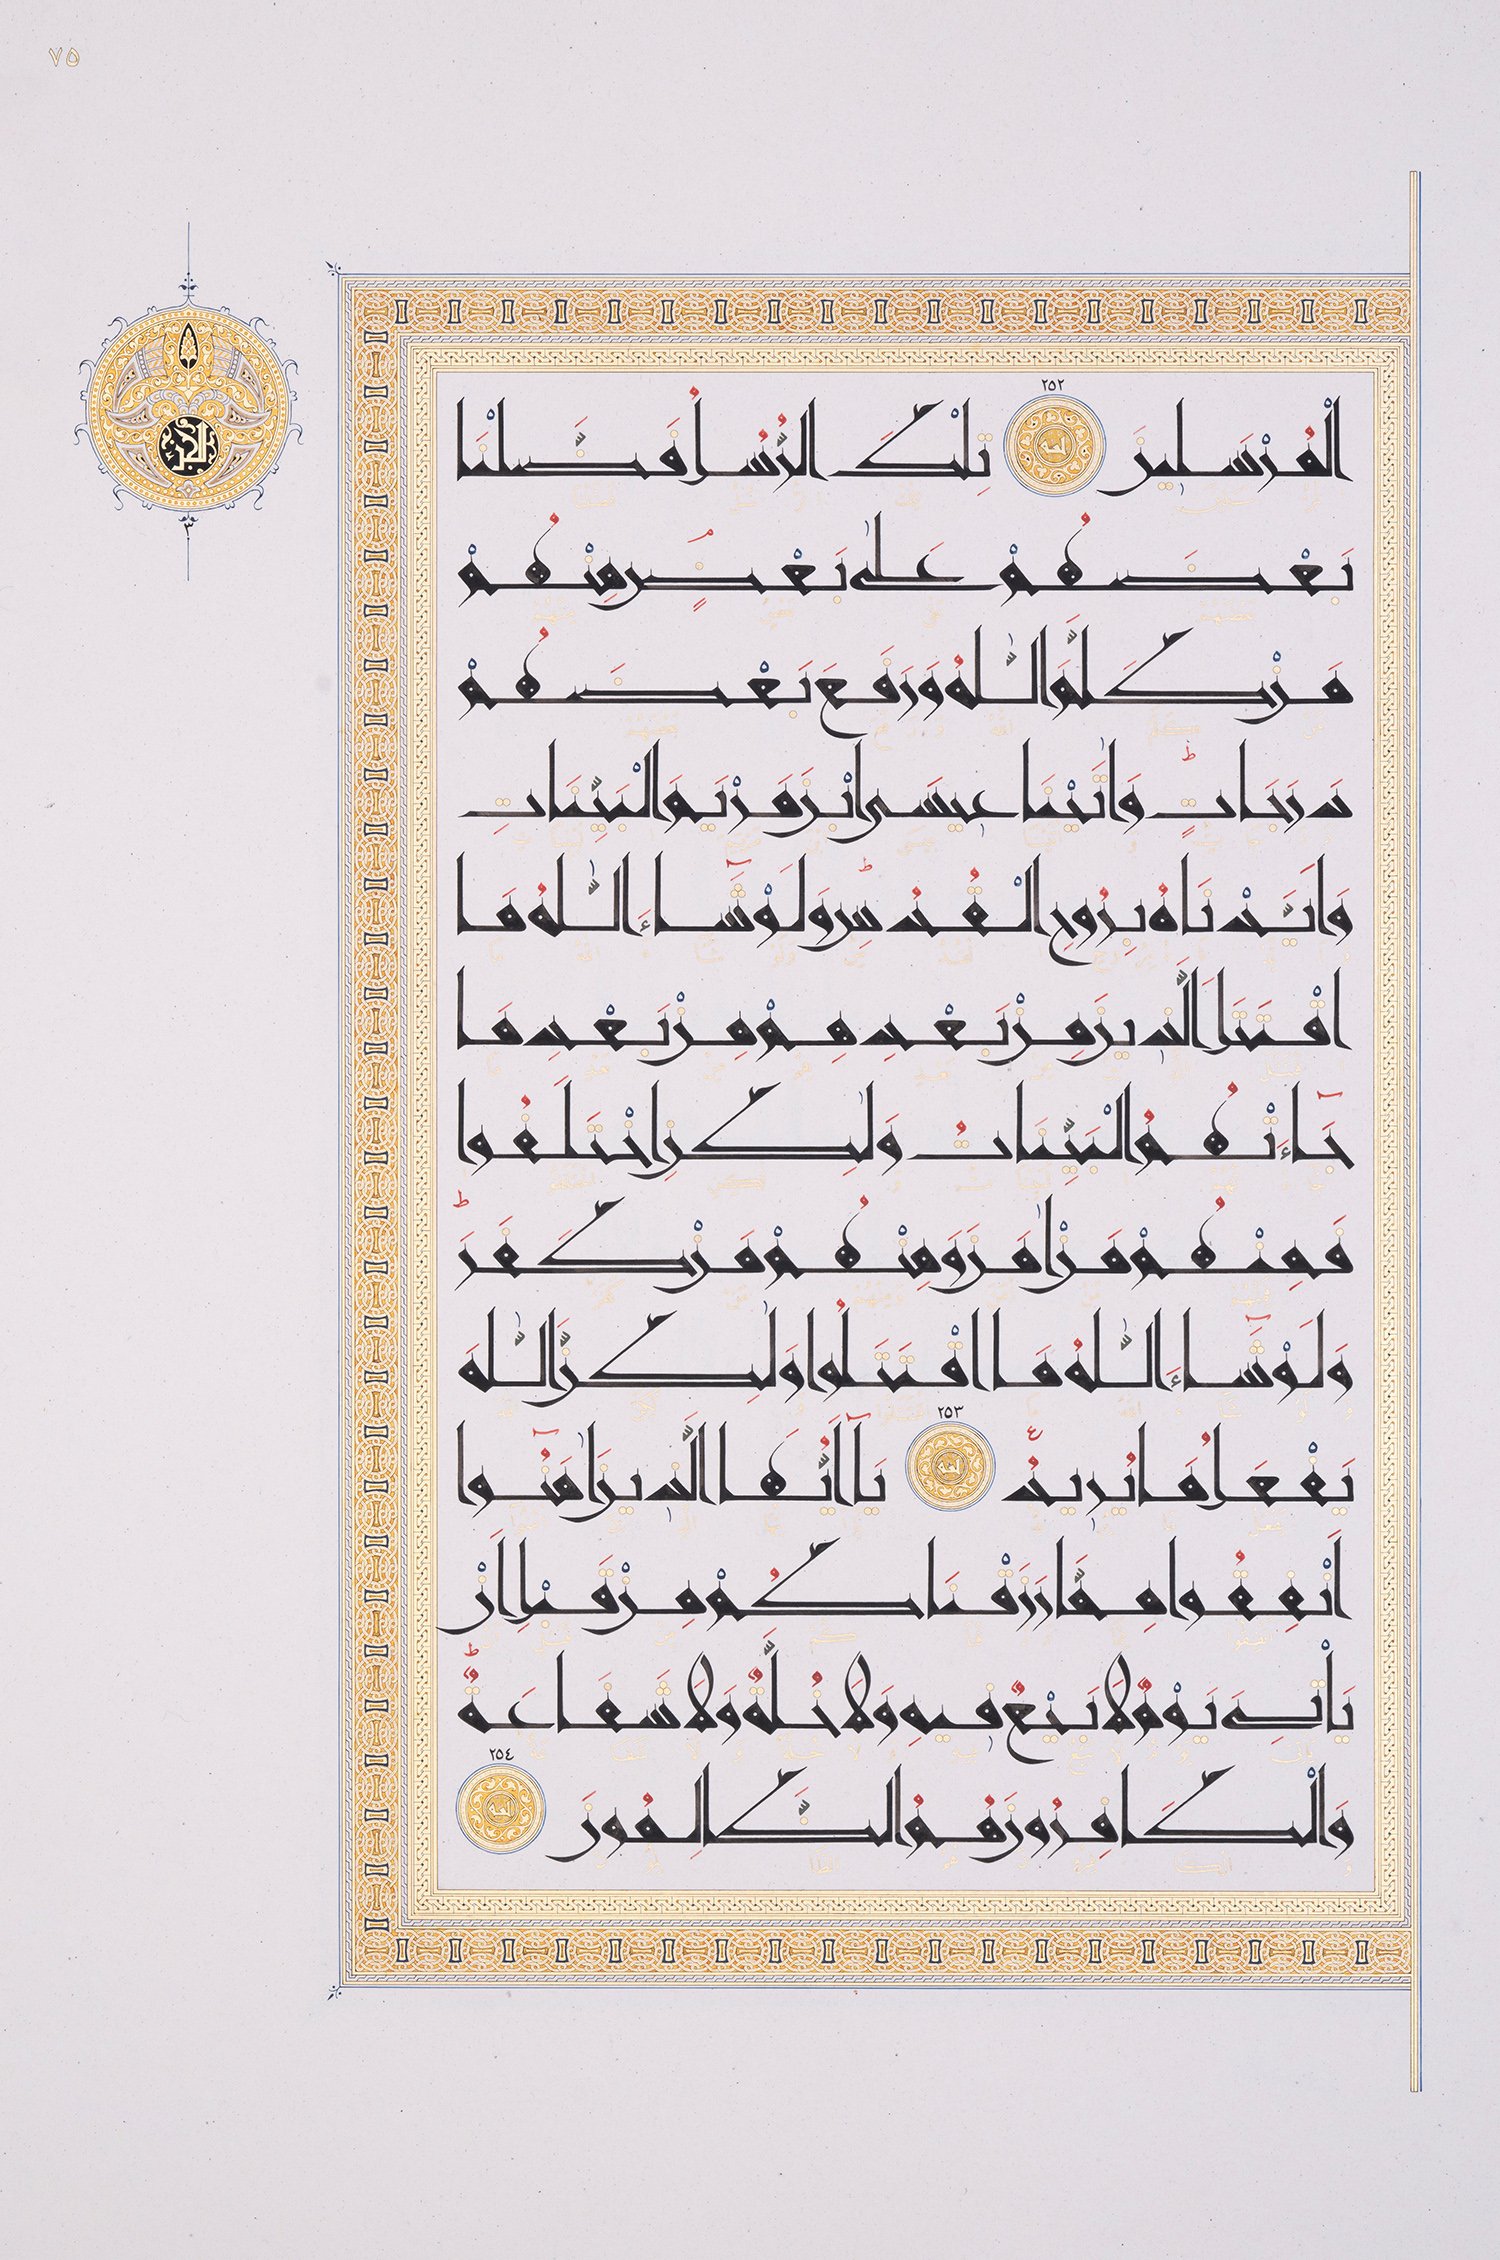 ٧٥
الجزء
٣
الْمُرْسَلِينَ ٢٥٢ تِلْكَ الرُّسُلُ فَضَّلْنَا
بَعْضَهُمْ عَلَىٰ بَعْضٍ مِنْهُمْ
مَنْ كَلَّمَ اللَّهُ وَرَفَعَ بَعْضَهُمْ
دَرَجَاتٍ ۚ وَآتَيْنَا عِيسَى ابْنَ مَرْيَمَ الْبَيِّنَاتِ
وَأَيَّدْنَاهُ بِرُوحِ الْقُدُسِ ۗ وَلَوْ شَاءَ اللَّهُ مَا
اقْتَتَلَ الَّذِينَ مِنْ بَعْدِهِمْ مِنْ بَعْدِ مَا
جَاءَتْهُمُ الْبَيِّنَاتُ وَلَٰكِنِ اخْتَلَفُوا
فَمِنْهُمْ مَنْ آمَنَ وَمِنْهُمْ مَنْ كَفَرَ ۚ
وَلَوْ شَاءَ اللَّهُ مَا اقْتَتَلُوا وَلَٰكِنَّ اللَّهَ
يَفْعَلُ مَا يُرِيدُ ٢٥٣ يَا أَيُّهَا الَّذِينَ آمَنُوا
أَنْفِقُوا مِمَّا رَزَقْنَاكُمْ مِنْ قَبْلِ أَنْ
يَأْتِيَ يَوْمٌ لَا بَيْعٌ فِيهِ وَلَا خُلَّةٌ وَلَا شَفَاعَةٌ ۗ
وَالْكَافِرُونَ هُمُ الظَّالِمُونَ ٢٥٤